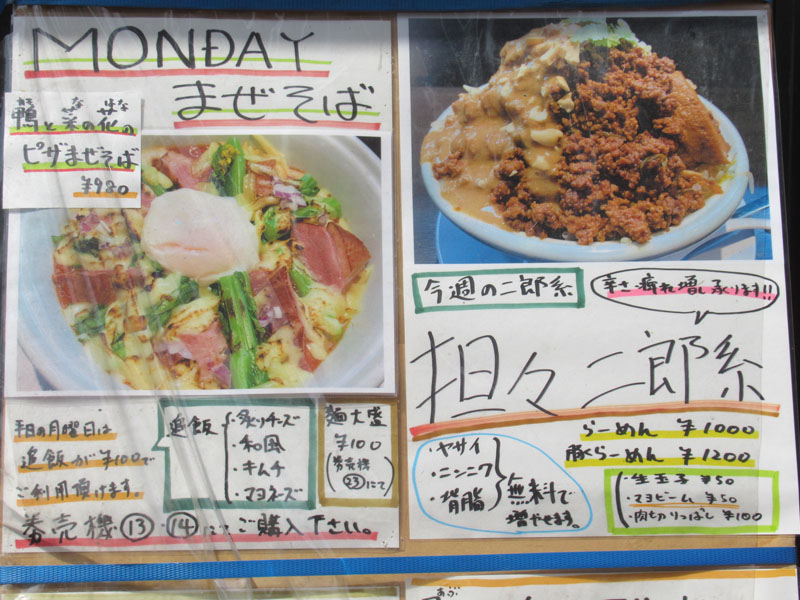 MONDAY
まぜそば
鴨と菜の花の
ピザまぜそば
¥980
平日の月曜日は
追飯が¥100で
ご利用頂けます。
追飯
・炙りチーズ
・和風
・キムチ
・マヨネーズ
麺大盛
¥100
(券売機
㉓にて)
券売機⑬・⑭にてご購入下さい。
今週の二郎系
辛さ・痺れ増し承ります!!
担々二郎系
らーめん ¥1000
豚らーめん ¥1200
・ヤサイ
・ニンニク
・背脂
無料で
増やせます。
・生玉子 ¥50
・マヨビーム ¥50
・肉切りっぱし ¥100